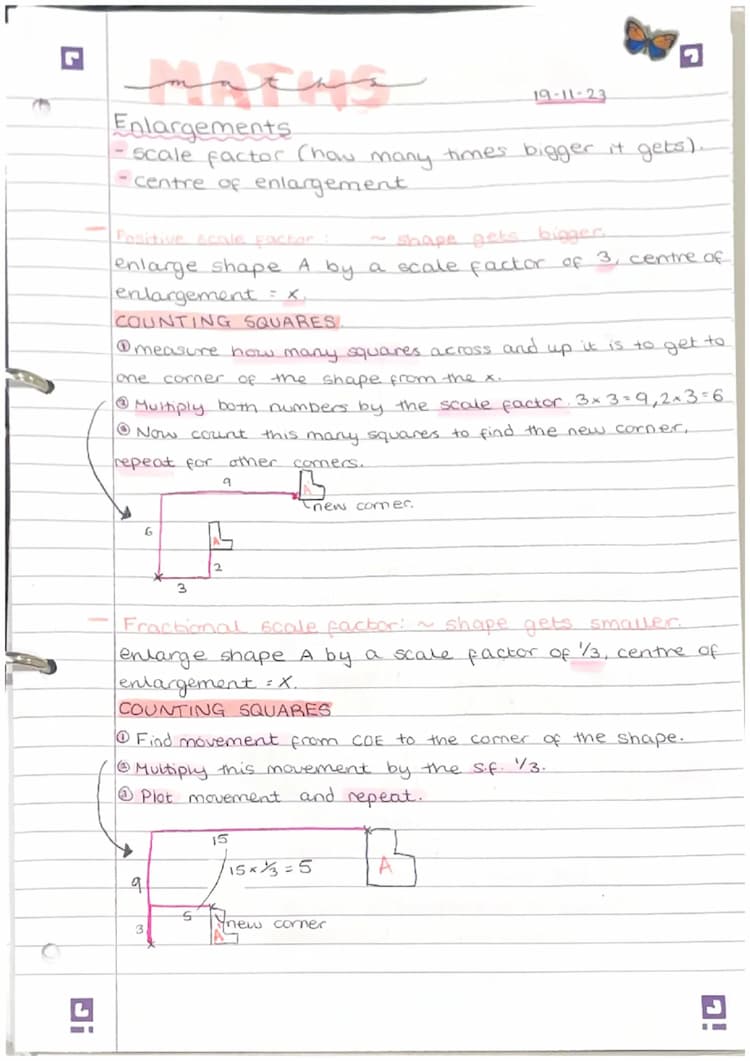 MATHS
maths
19-11-23
Enlargements
- scale factor (how many times bigger it gets).
- centre of enlargement
- Positive scale factor: ~ shape gets bigger.
enlarge shape A by a scale factor of 3, centre of
enlargement = x.
COUNTING SQUARES.
① measure how many squares across and up it is to get to
one corner of the shape from the x.
② Multiply both numbers by the scale factor. 3×3=9, 2×3=6
③ Now count this many squares to find the new corner,
repeat for other corners.
9
A
new corner.
6
A
2
x
3
- Fractional scale factor: ~ shape gets smaller.
enlarge shape A by a scale factor of 1/3, centre of
enlargement = X.
COUNTING SQUARES
① Find movement from COE to the corner of the shape.
② Multiply this movement by the s.f. 1/3.
③ Plot movement and repeat.
x
15
15 × 1/3 = 5
A
9
5
x
new corner
3
A
x